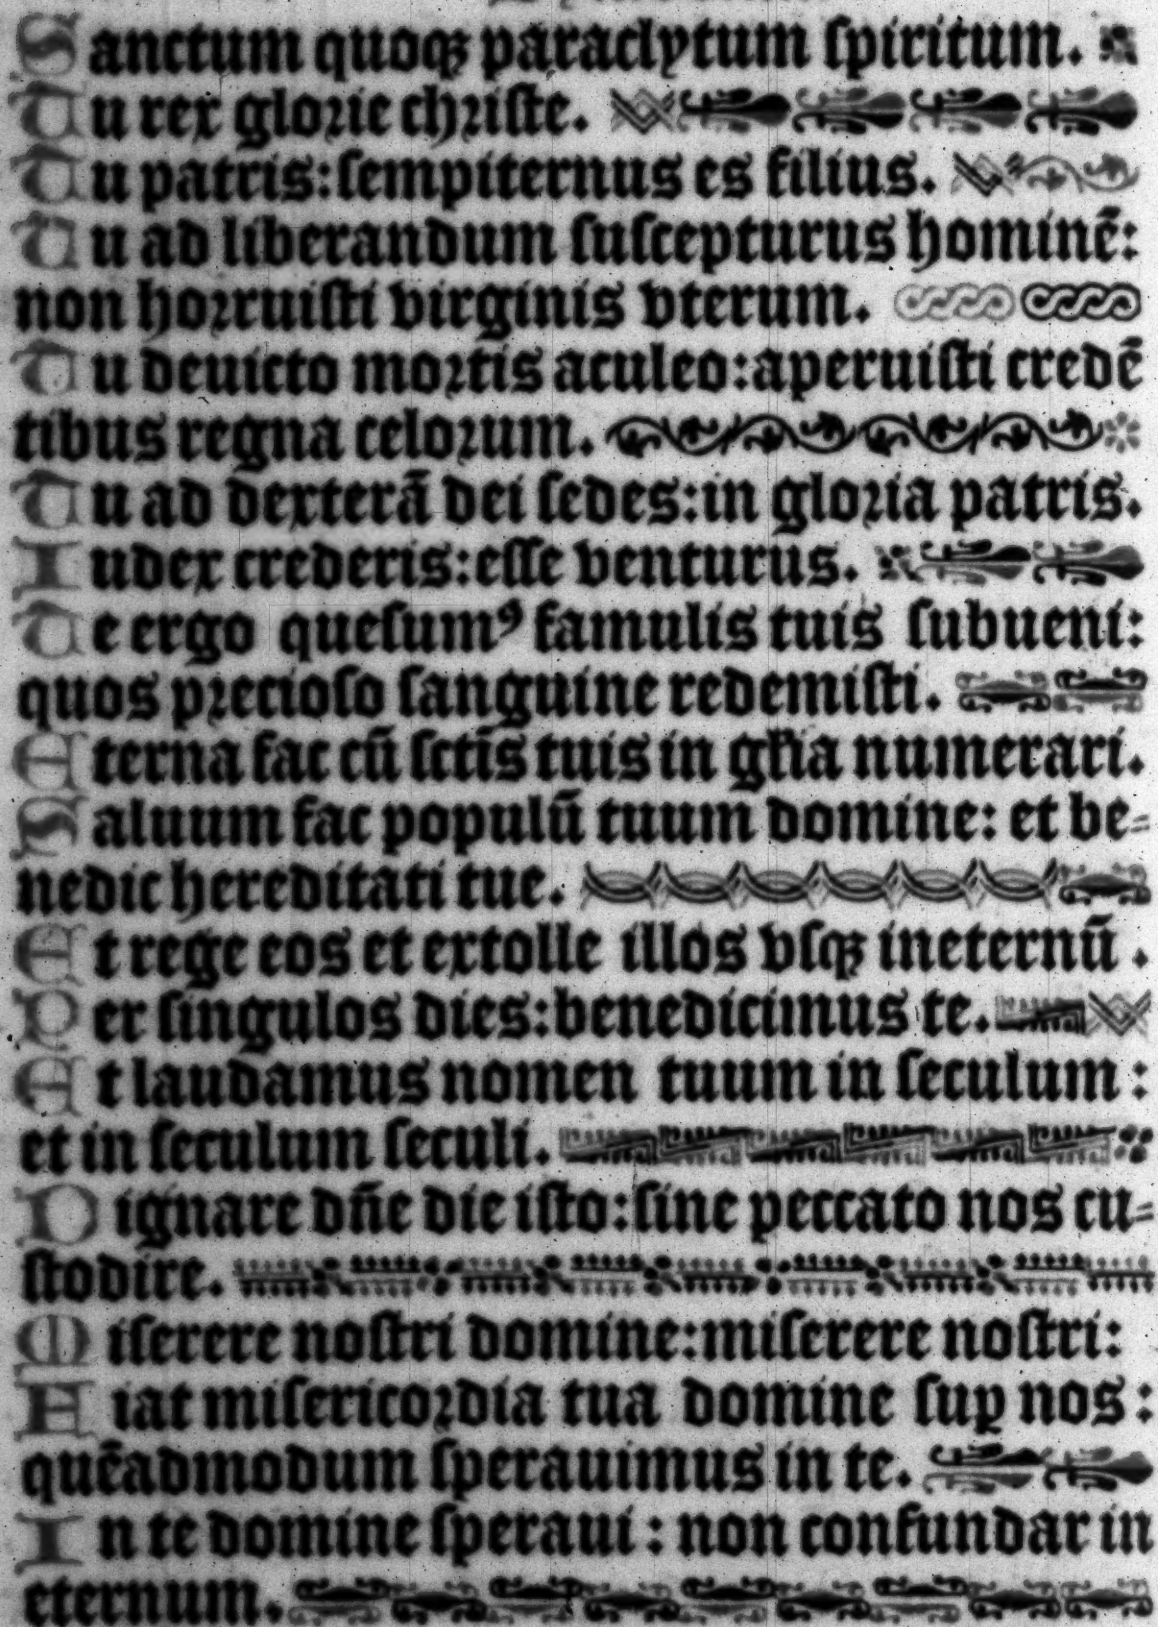 Sanctum quoqꝫ paraclytum ſpiritum.
Tu rex gloꝛie chꝛiſte.
Tu patris: ſempiternus es filius.
Tu ad liberandum ſuſcepturus hominē:
non hoꝛruiſti virginis vterum.
Tu deuicto moꝛtis aculeo: aperuiſti credē
tibus regna celoꝛum.
Tu ad dexterā dei ſedes: in gloꝛia patris.
Iudex crederis: eſſe venturus.
Te ergo queſumꝰ famulis tuis ſubueni:
quos pꝛecioſo ſanguine redemiſti.
Eterna fac cū ſctīs tuis in gɫia numerari.
Saluum fac populū tuum domine: et be⸗
nedic hereditati tue.
Et rege eos et extolle illos vſqꝫ ineternū.
Per ſingulos dies: benedicimus te.
Et laudamus nomen tuum in ſeculum:
et in ſeculum ſeculi.
Dignare dn̄e die iſto: ſine peccato nos cu⸗
ſtodire.
Miſerere noſtri domine: miſerere noſtri:
Fiat miſericoꝛdia tua domine ſuꝑ nos:
quēadmodum ſperauimus in te.
In te domine ſperaui: non confundar in
eternum.